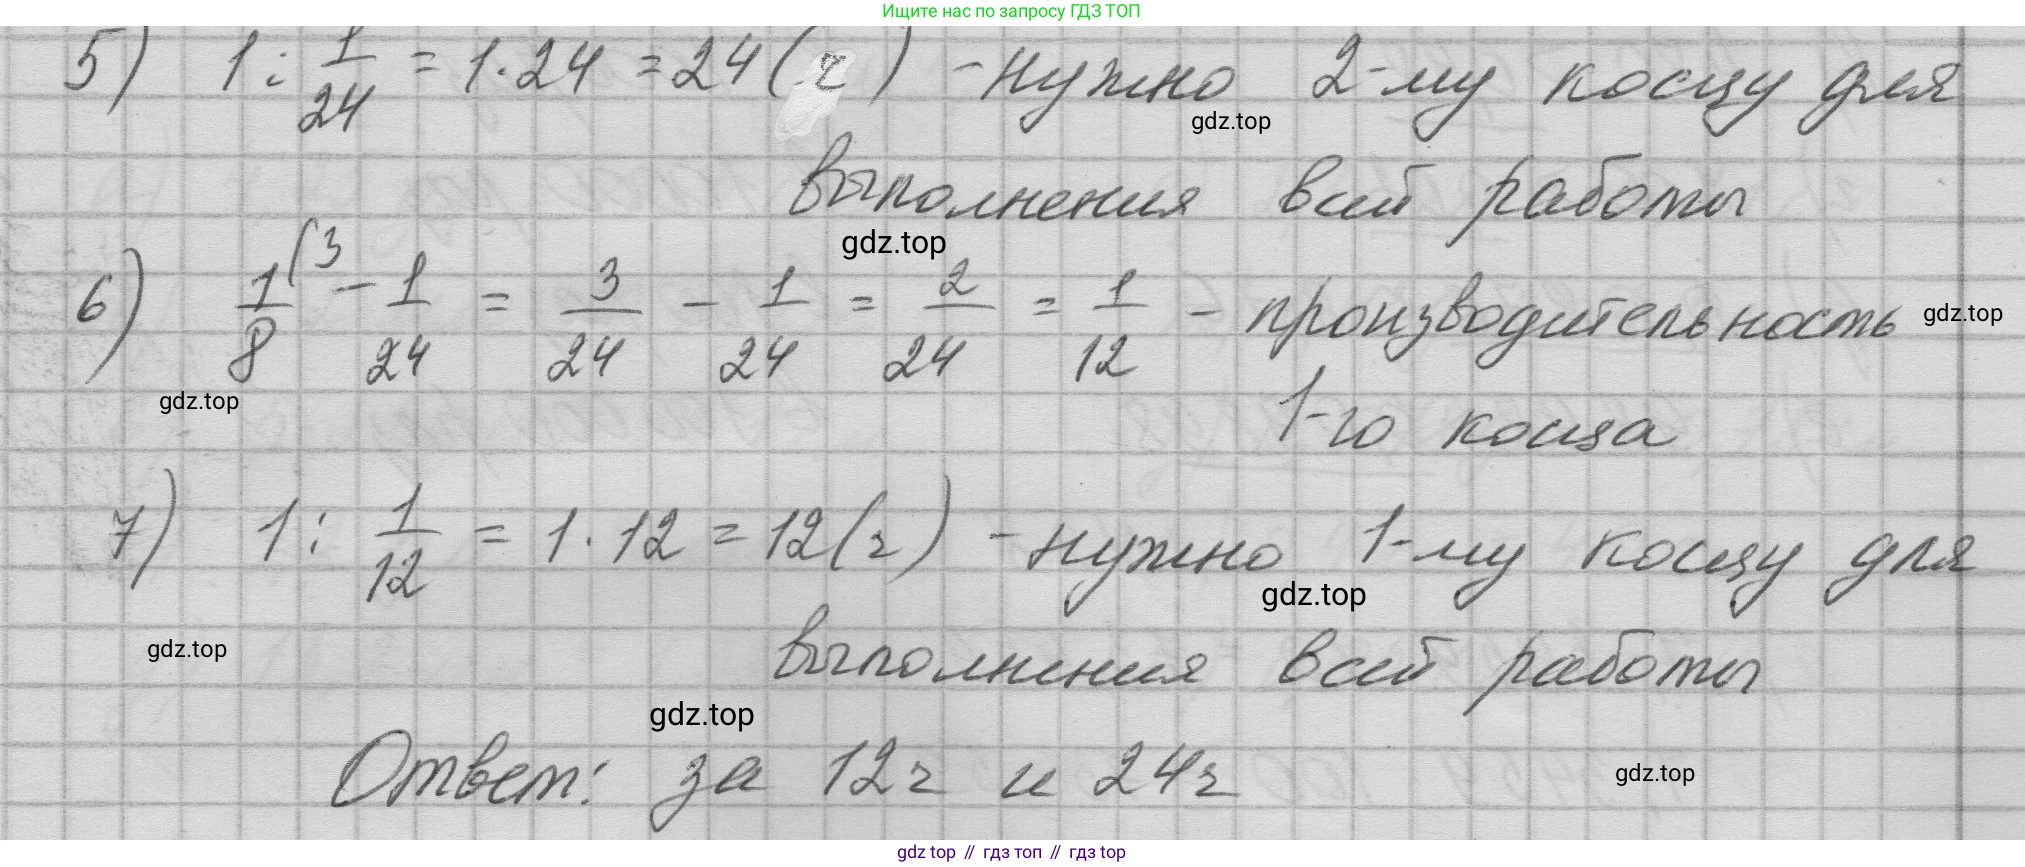 Ищите нас по запросу ГДЗ ТОП
5) 1 : 1/24 = 1 · 24 = 24 (ч) - нужно 2-му косцу для
gdz.top
выполнения всей работы
gdz.top
6) 1/8 (3 - 1/24 = 3/24 - 1/24 = 2/24 = 1/12 - производительность
gdz.top
gdz.top
1-го косца
7) 1 : 1/12 = 1 · 12 = 12 (ч) - нужно 1-му косцу для
gdz.top
gdz.top
выполнения всей работы
gdz.top
Ответ: за 12ч и 24ч
gdz.top
gdz top // гдз топ // гдз top